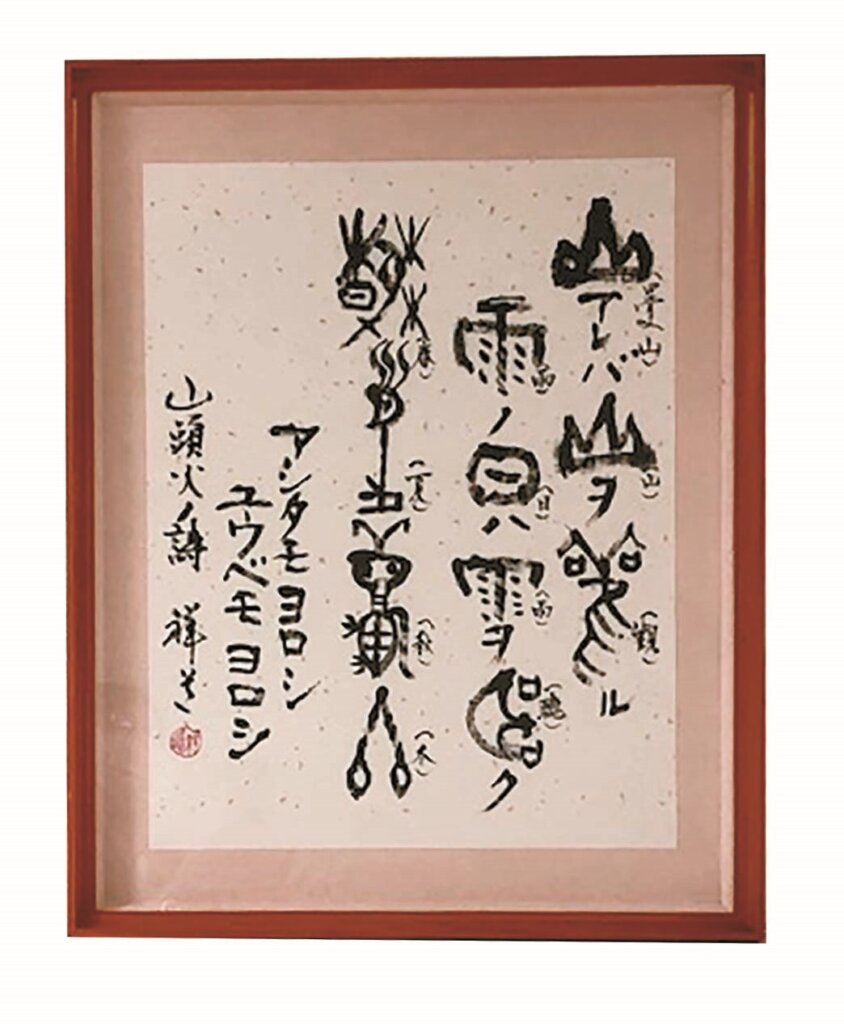 山アレバ山(山)ヲ観(観)ル
雨(雨)ノ日(日)ハ雨(雨)ヲ聴(聴)ク
春(春)夏(夏)秋(秋)冬(冬)
アシタモヨロシ
ユウベモヨロシ
山頭火ノ詩 祥